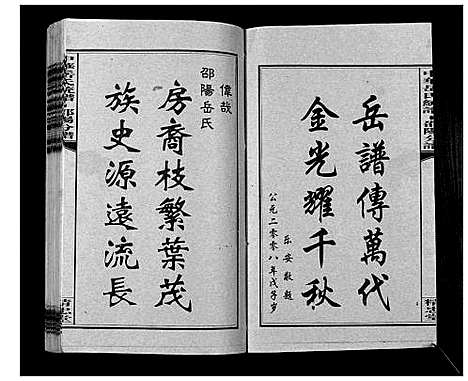 岳譜傳萬代
金光耀千秋
乐安敬題
公元二零零八年戊子岁
偉哉
邵陽岳氏
房裔枝繁葉茂
族史源遠流長
中華岳氏統譜
邵陽分譜